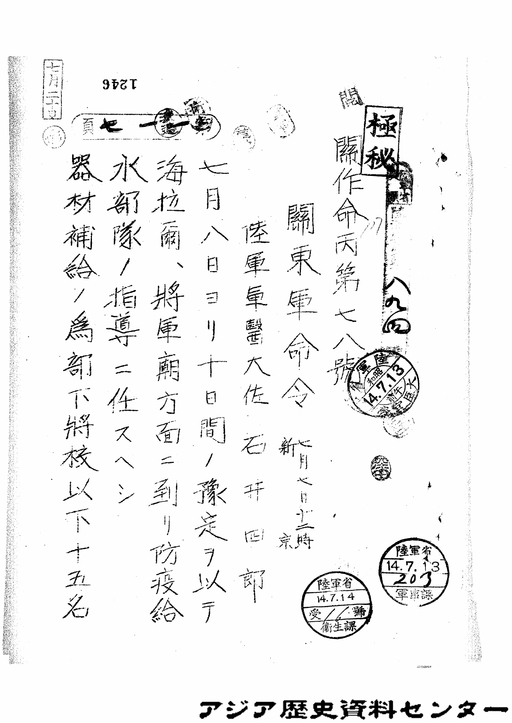 極秘
關作命丙第七八號
關東軍命令
七月七日十二時
新京
陸軍軍醫大佐 石井四郎
七月八日ヨリ十日間ノ豫定ヲ以テ
海拉爾、將軍廟方面ニ到リ防疫給
水部隊ノ指導ニ任スヘシ
器材補給ノ爲部下將校以下十五名
八九四
陸軍
14.7.13
陸軍省
14.7.13
203
軍事課
陸軍省
14.7.14
受
衛生課
1246
頁
アジア歴史資料センター